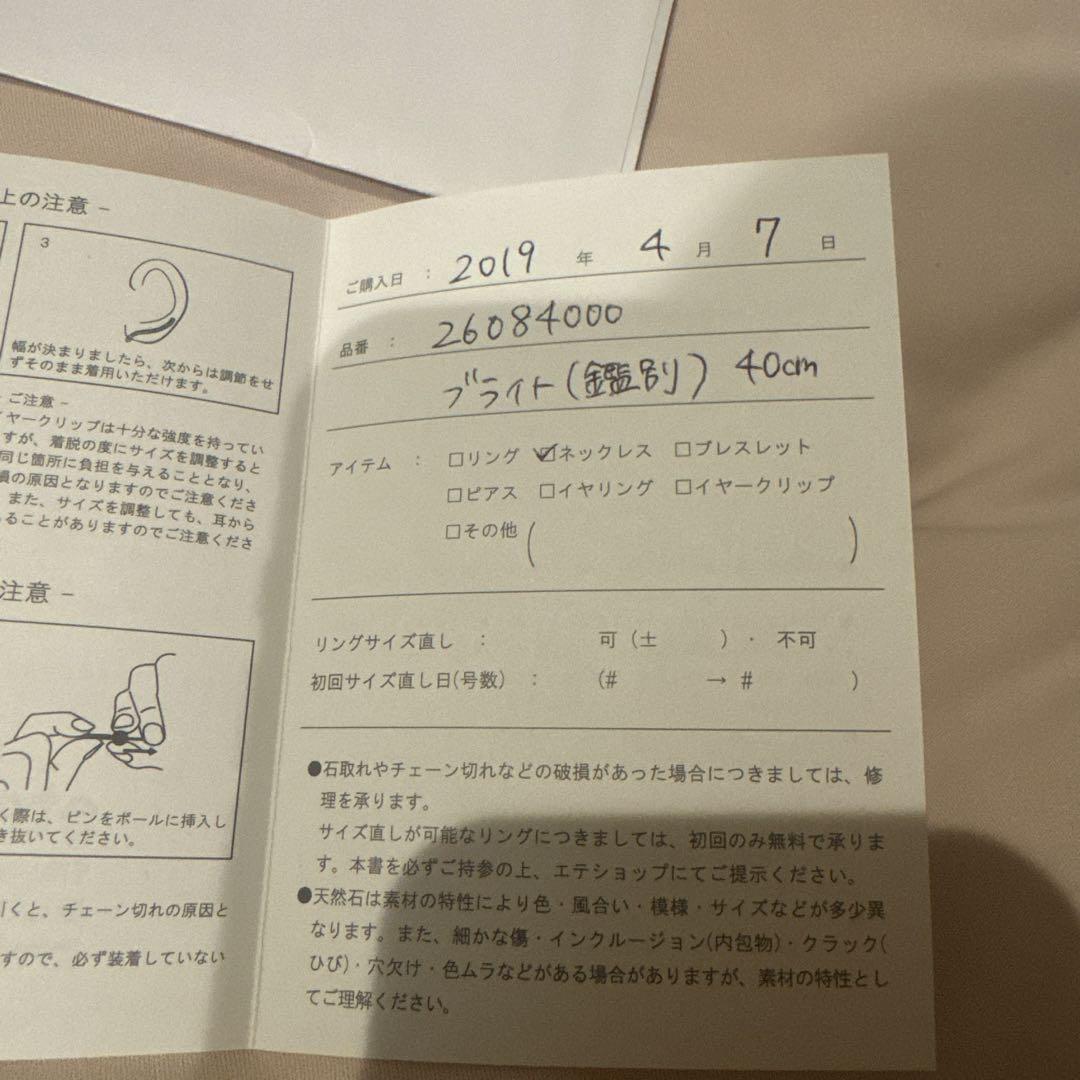 上の注意 -
3
幅が決まりましたら、次からは調節をせ
ずそのまま着用いただけます。
ご注意 -
イヤークリップは十分な強度を持ってい
すが、着脱の度にサイズを調整すると
同じ箇所に負担を与えることとなり、
損の原因となりますのでご注意くださ
また、サイズを調整しても、耳から
ることがありますのでご注意くださ
注意 -
く際は、ピンをボールに挿入し
き抜いてください。
引くと、チェーン切れの原因と
すので、必ず装着していない
ご購入日 : 2019 年 4 月 7 日
品番 : 26084000
ブライト(鑑別) 40cm
アイテム : □リング ☑ネックレス □ブレスレット
□ピアス □イヤリング □イヤークリップ
□その他 ( )
リングサイズ直し : 可 (± ) ・ 不可
初回サイズ直し日(号数) : (# → # )
●石取れやチェーン切れなどの破損があった場合につきましては、修
理を承ります。
サイズ直しが可能なリングにつきましては、初回のみ無料で承りま
す。本書を必ずご持参の上、エテショップにてご提示ください。
●天然石は素材の特性により色・風合い・模様・サイズなどが多少異
なります。また、細かな傷・インクルージョン(内包物)・クラック(
ひび)・穴欠け・色ムラなどがある場合がありますが、素材の特性とし
てご理解ください。